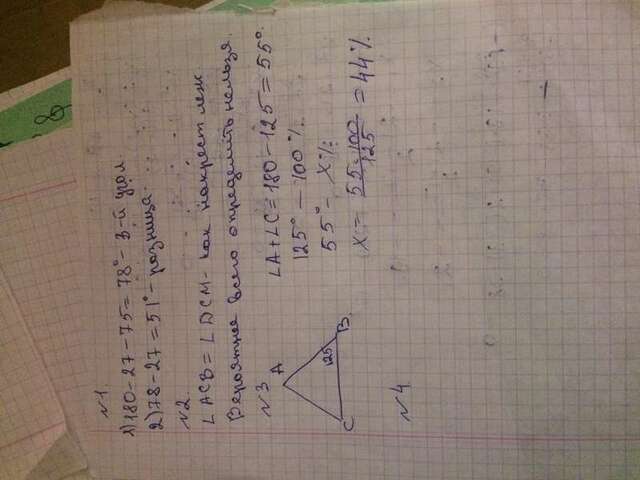 №1.
1) 180 - 27 - 75 = 78° - 3-й угол.
2) 78 - 27 = 51° - розница.
№2.
∠ACB = ∠DCM - как накрест леж.
Вероятнее всего определить нельзя.
№3
A
125
C
B
∠A + ∠C = 180 - 125 = 55°.
125° - 100%
55° - x%
x = 55·100/125 = 44%
№4